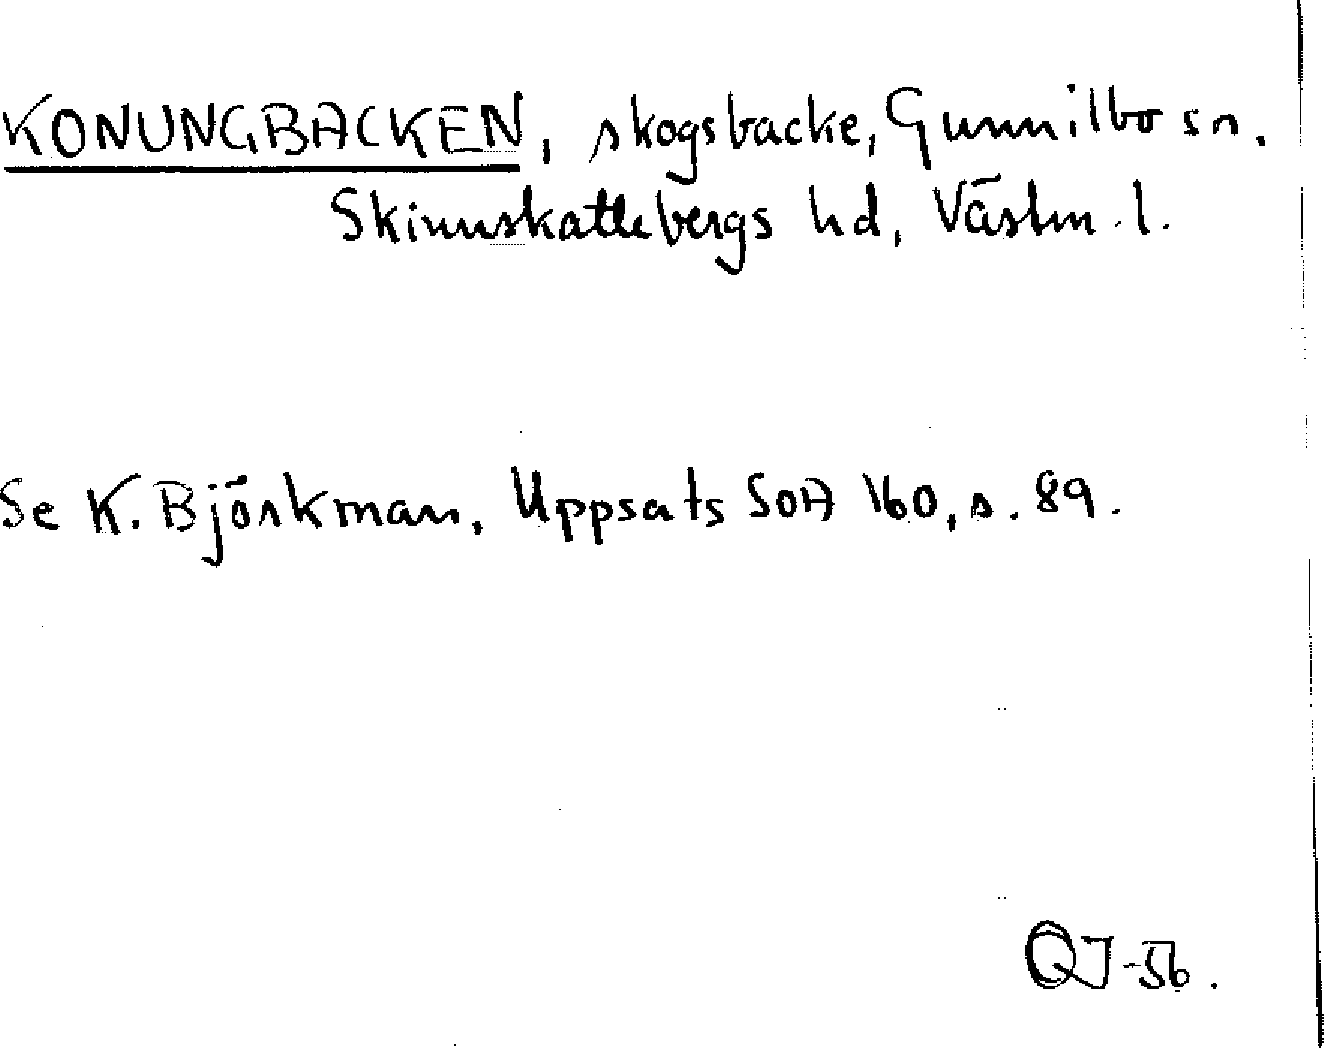 KONUNGBACKEN, skogsbacke, Gunnilbo sn.
Skinnskattebergs hd, Västm. l.
Se K. Björkman, Uppsats SOA 160, s. 89.
QJ-56.